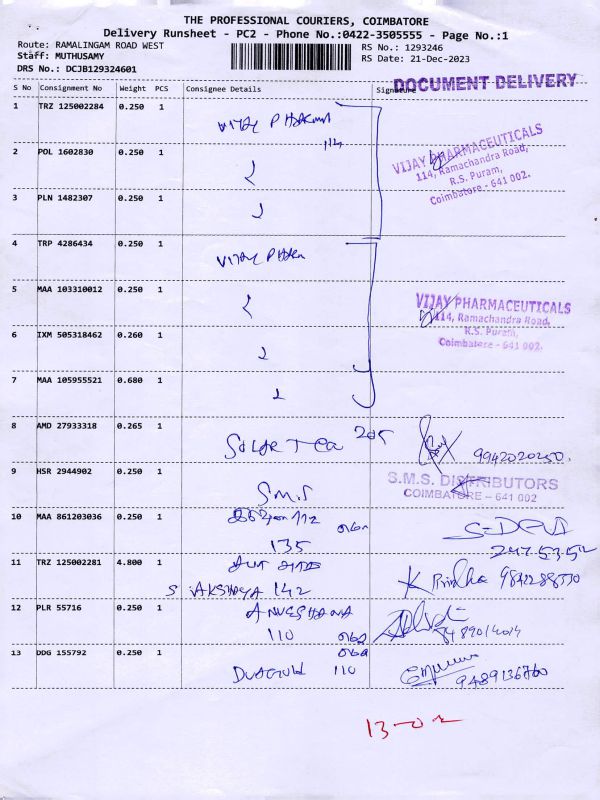 THE PROFESSIONAL COURIERS, COIMBATORE
Delivery Runsheet - PC2 - Phone No.:0422-3505555 - Page No.:1
Route: RAMALINGAM ROAD WEST
Staff: MUTHUSAMY
DRS No.: DCJB129324601
RS No.: 1293246
RS Date: 21-Dec-2023
DOCUMENT DELIVERY
S No Consignment No Weight PCS Consignee Details Signature
1 TRZ 125002284 0.250 1
VIJAY PHARMA
114
VIJAY PHARMACEUTICALS
114, Ramachandra Road,
R.S. Puram,
Coimbatore - 641 002.
2 POL 1602830 0.250 1
3 PLN 1482307 0.250 1
4 TRP 4286434 0.250 1
VIJAY PHAR
5 MAA 103310012 0.250 1
VIJAY PHARMACEUTICALS
114, Ramachandra Road,
R.S. Puram,
Coimbatore - 641 002.
6 IXM 505318462 0.260 1
7 MAA 105955521 0.680 1
8 AMD 27933318 0.265 1
205
9942020250.
9 HSR 2944902 0.250 1
S.M.S
S.M.S. DISTRIBUTORS
COIMBATORE - 641 002
10 MAA 861203036 0.250 1
135
S-DEVI
11 TRZ 125002281 4.800 1
S AKSHAYA 142
12 PLR 55716 0.250 1
110
13 DDG 155792 0.250 1
110
9489136760